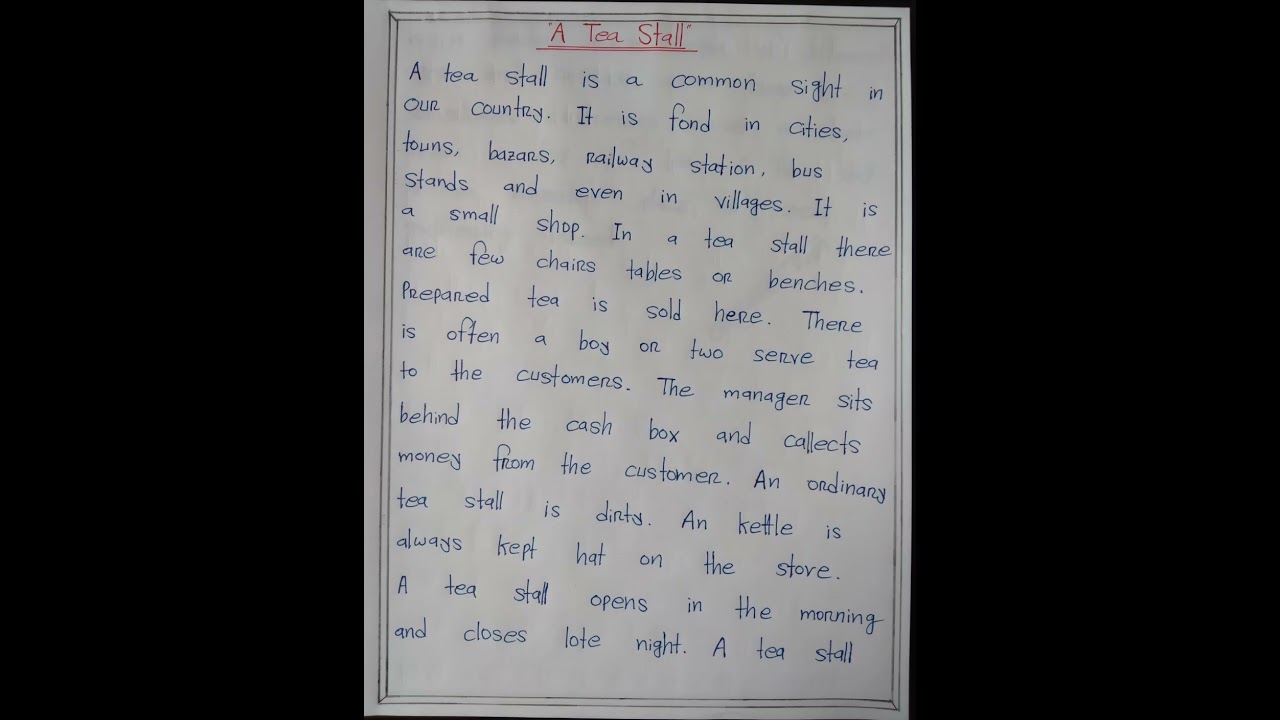 "A Tea Stall"
A tea stall is a common sight in
our country. It is fond in cities,
touns, bazars, railway station, bus
stands and even in villages. It is
a small shop. In a tea stall there
are few chairs tables or benches.
Prepared tea is sold here. There
is often a boy or two serve tea
to the customers. The manager sits
behind the cash box and callects
money from the customer. An ordinary
tea stall is dirty. An kettle is
always kept hat on the stove.
A tea stall opens in the morning
and closes lote night. A tea stall